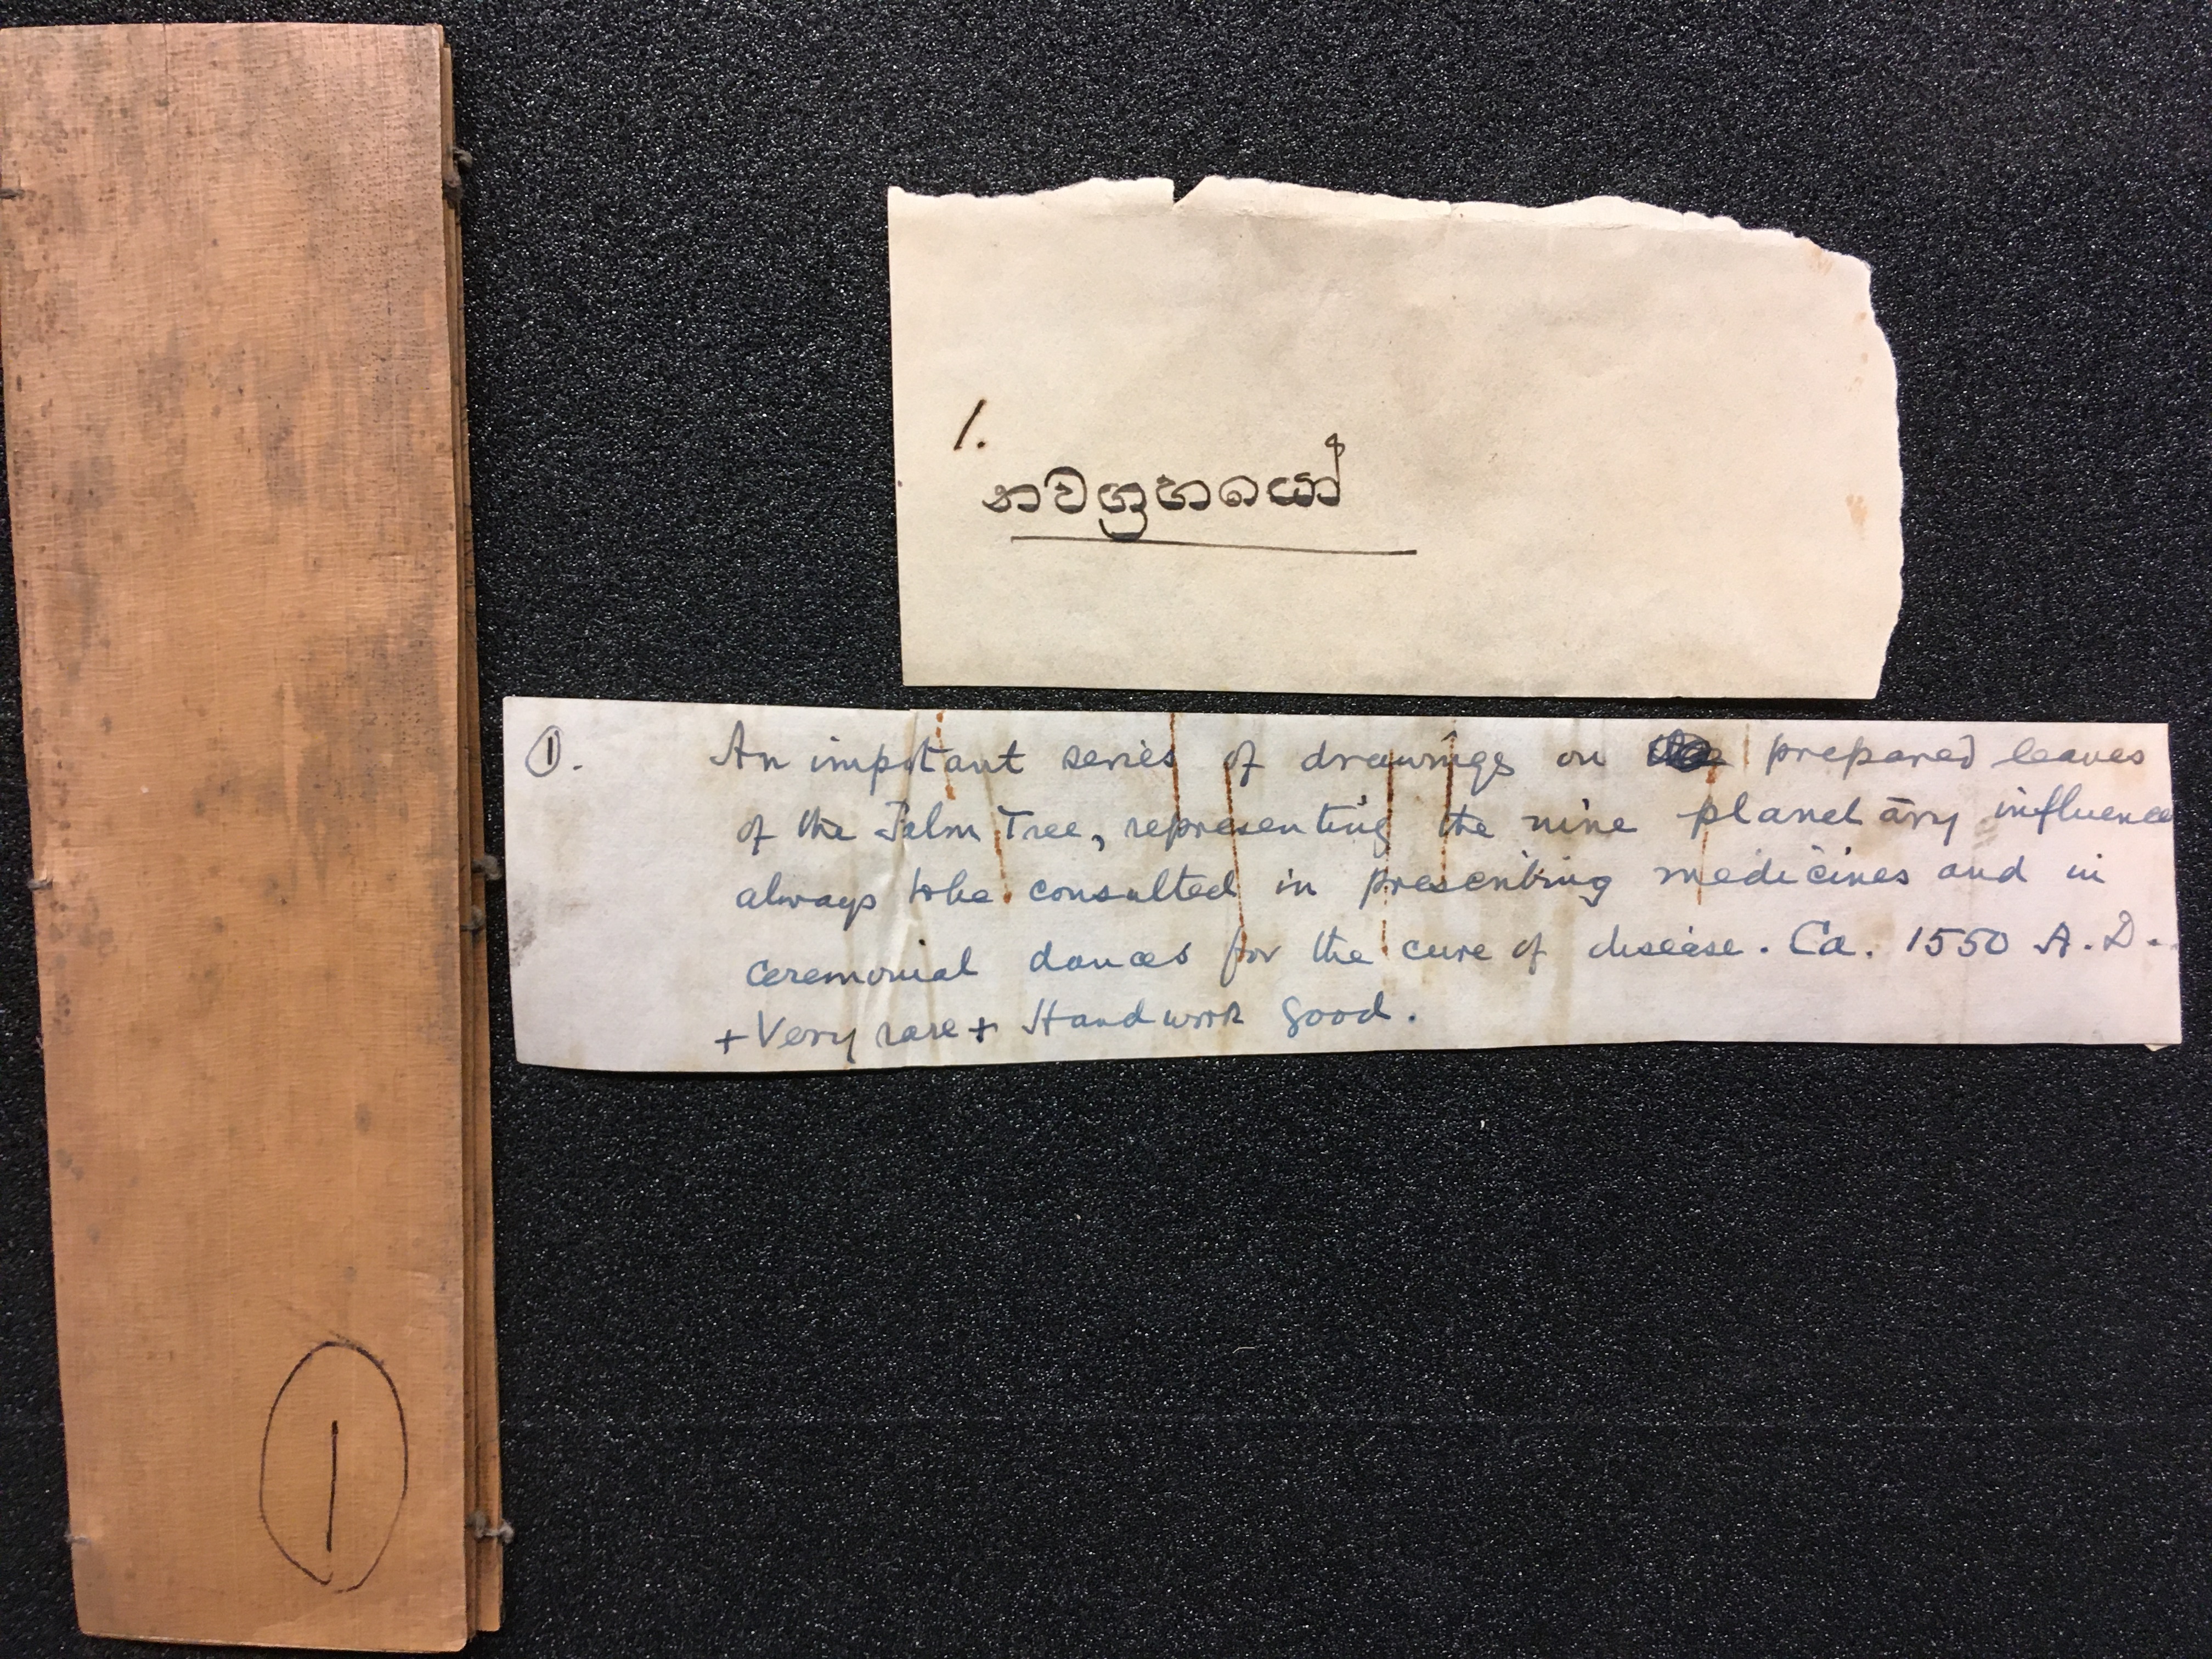 1.
නවග්‍රහයෝ
①. An important series of drawings on prepared leaves
of the Palm Tree, representing the nine planetary influence
always to be consulted in prescribing medicines and in
ceremonial dances for the cure of disease. Ca. 1550 A.D.
+ Very rare + Handwork good.
①